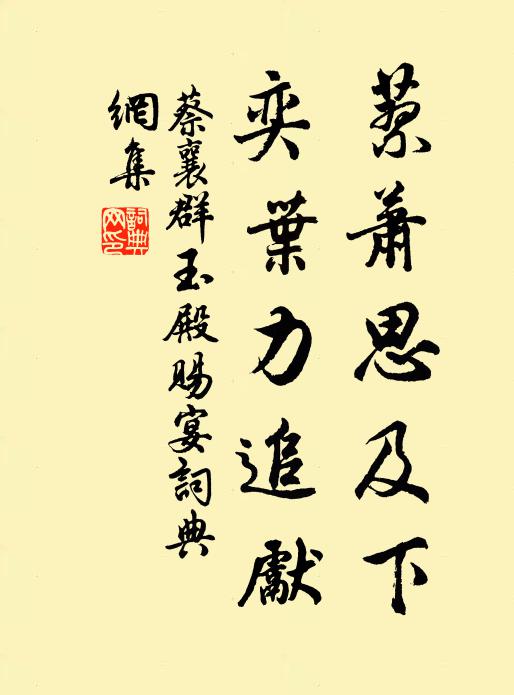 蓼蕭思及下
奕葉力追獻
蔡襄群玉殿賜宴詞典
網集
詞典網印